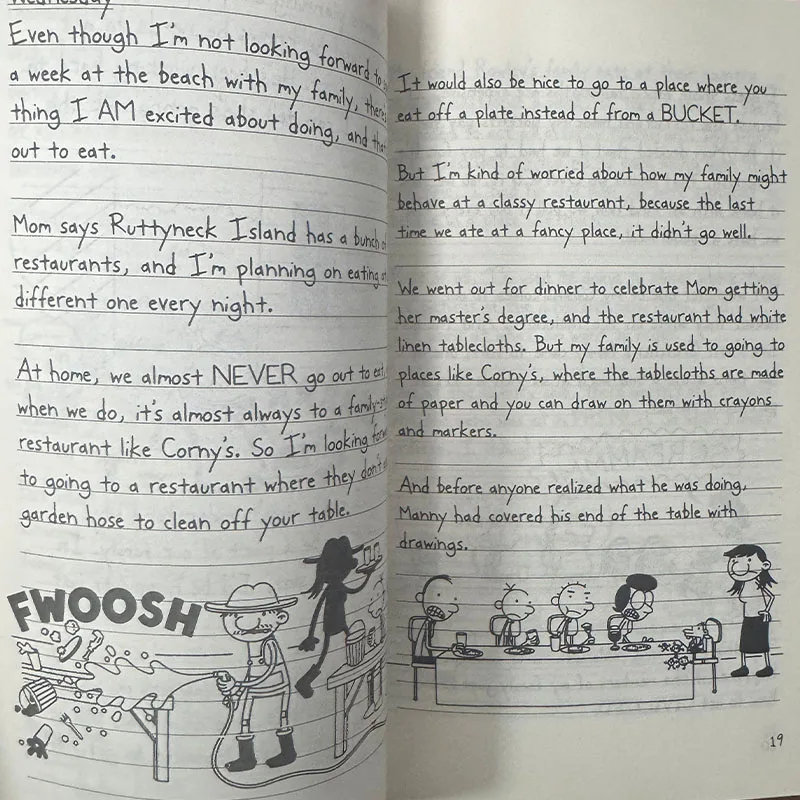 Wednesday
Even though I'm not looking forward to
a week at the beach with my family, there's
thing I AM excited about doing, and that
out to eat.
Mom says Ruttyneck Island has a bunch of
restaurants, and I'm planning on eating at
different one every night.
At home, we almost NEVER go out to eat,
when we do, it's almost always to a
restaurant like Corny's. So I'm looking
to going to a restaurant where they don't
garden hose to clean off your table.
FWOOSH
It would also be nice to go to a place where you
eat off a plate instead of from a BUCKET.
But I'm kind of worried about how my family might
behave at a classy restaurant, because the last
time we ate at a fancy place, it didn't go well.
We went out for dinner to celebrate Mom getting
her master's degree, and the restaurant had white
linen tablecloths. But my family is used to going to
places like Corny's, where the tablecloths are made
of paper and you can draw on them with crayons
and markers.
And before anyone realized what he was doing,
Manny had covered his end of the table with
drawings.
19